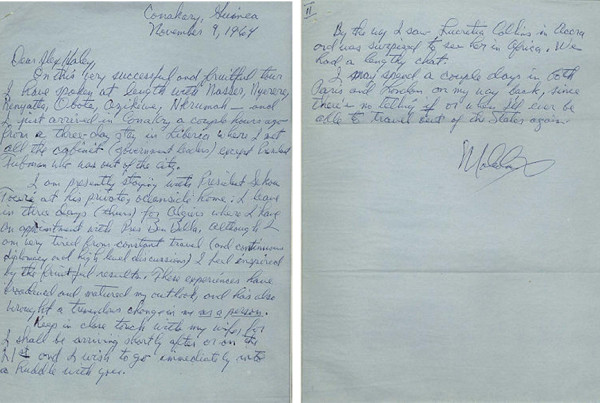 Conakry, Guinea
November 9, 1964
Dear Alex Haley:
On this very successful and fruitful tour
I have spoken at length with Nasser, Nyerere,
Kenyatta, Obote, Azikiwe, Nkrumah — and
I just arrived in Conakry a couple hours ago
from a three-day stay in Liberia where I met
all the cabinet (government leaders) except President
Tubman who was out of the city.
I am presently staying with President Sekou
Toure at his private, oceanside home. I leave
in three days (thurs) for Algiers where I have
an appointment with Pres Ben Bella. Although I
am very tired from constant travel (and continuous
diplomacy and high level discussions) I feel inspired
by the fruitful results. These experiences have
broadened and matured my outlook, and has also
wrought a tremendous change in me as a person.
Keep in close touch with my wife, for
I shall be arriving shortly after or on the
and I wish to go immediately into
a huddle with you.
II
By the way I saw Lucretia Collins in Accra
and was surprised to see her in Africa. We
had a lengthy chat.
I may spend a couple days in both
Paris and London on my way back, since
there's no telling if or when I'll ever be
able to travel out of the States again.
Malcolm X